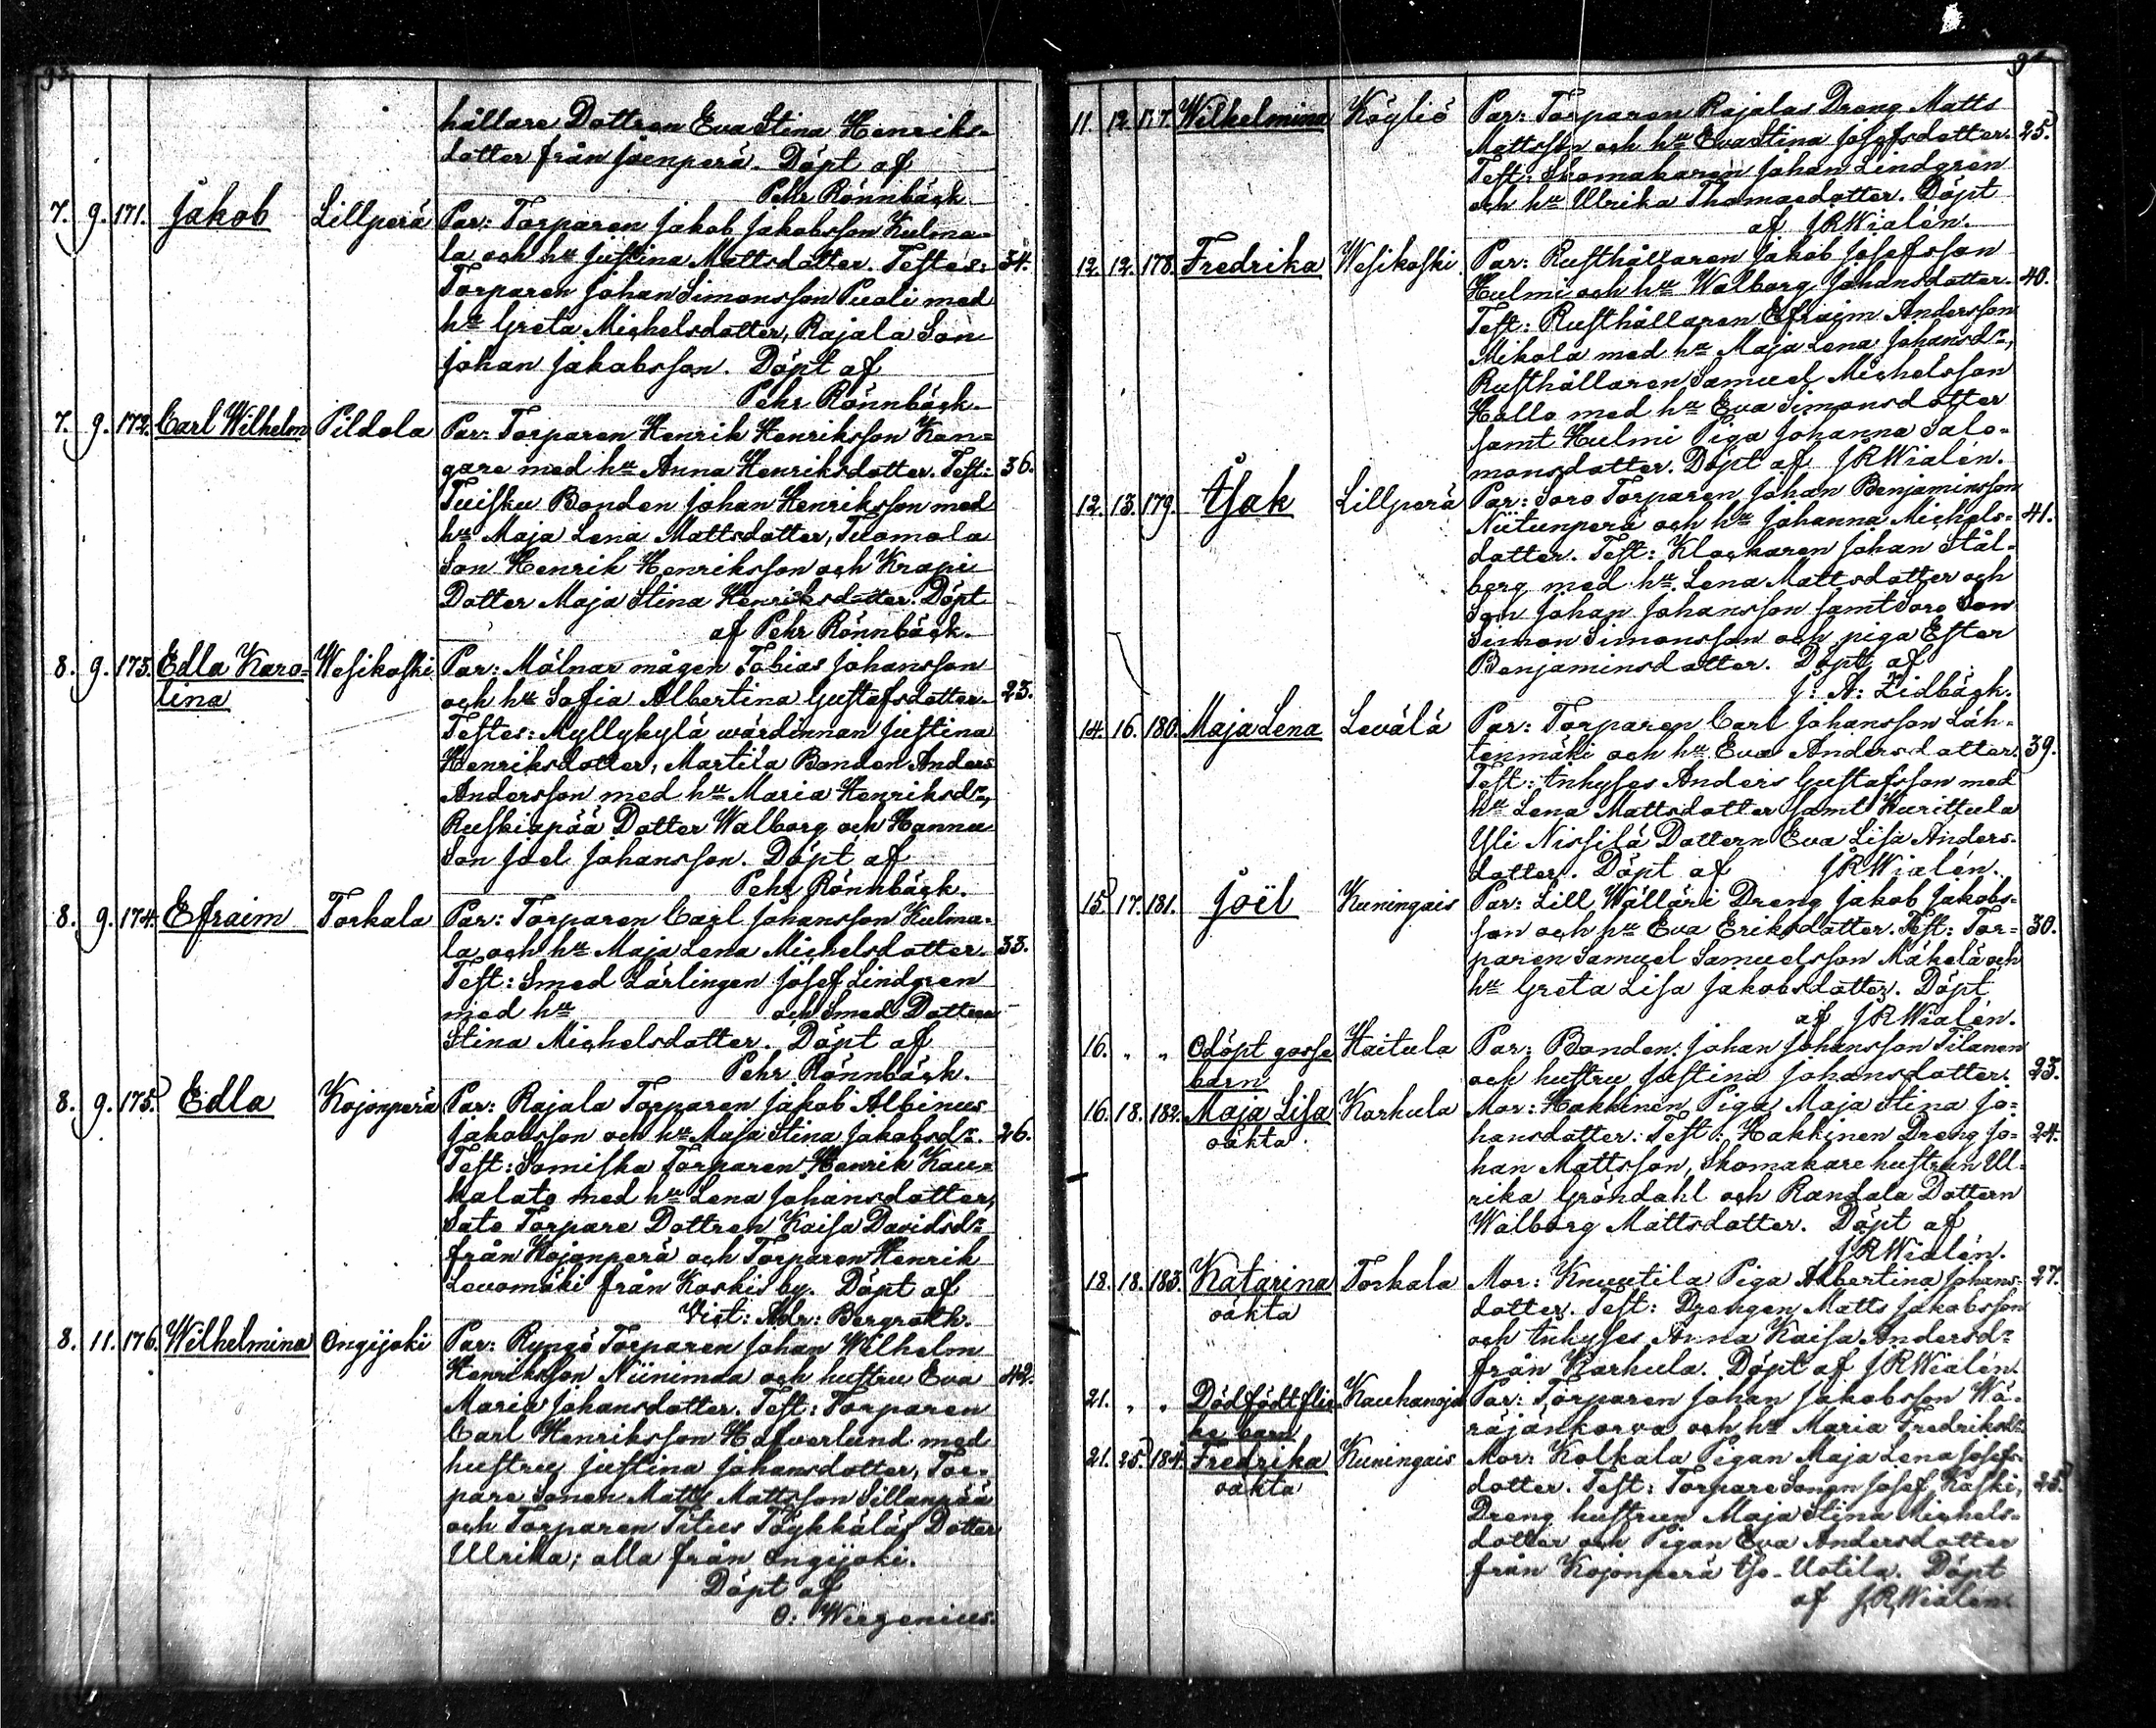 93
hållare Dottren Eva Stina Henriks-
dotter från Jaenperä. Döpt af
Pehr Rönnbäck.
7. 9. 171. Jakob Lillperä Par: Torparen Jakob Jakobsson Kulma-
la och hu Justina Mattsdotter. Testes: 34.
Torparen Johan Simonsson Puoli med
hu Greta Michelsdotter, Rajala Son
Johan Jakobsson. Döpt af
Pehr Rönnbäck.
7. 9. 172. Carl Wilhelm Pildola Par: Torparen Henrik Henriksson Kan-
gare med hu Anna Henriksdotter. Test: 36.
Tuisku Bonden Johan Henriksson med
hu Maja Lena Mattsdotter, Tuomola
Son Henrik Henriksson och Krapi
Dotter Maja Stina Henriksdotter. Döpt
af Pehr Rönnbäck.
8. 9. 173. Edla Karo- Wesikoski Par: Mölnar mågen Tobias Johansson
lina och hu Sofia Albertina Gustafsdotter. 23.
Testes: Myllykylä wärdinnan Justina
Henriksdotter, Martila Bonden Anders
Andersson med hu Maria Henriksdr,
Ruskiapää Dotter Walborg och Hannu
Son Joel Johansson. Döpt af
Pehr Rönnbäck.
8. 9. 174. Efraim Torkala Par: Torparen Carl Johansson Kulma-
la och hu Maja Lena Michelsdotter. 33.
Test: Smed Lärlingen Josef Lindgren
med hu och Smed Dottern
Stina Michelsdotter. Döpt af
Pehr Rönnbäck.
8. 9. 175. Edla Kojonperä Par: Rajala Torparen Jakob Albinus
Jakobsson och hu Maja Stina Jakobsdr. 26.
Test: Lomiska Torparen Henrik Kau-
kalato med hu Lena Johansdotter,
Sato Torpare Dottren Kaisa Davidsdr
från Kojonperä och Torparen Henrik
Levomäki från Koskis by. Döpt af
Vict: Adr: Bergroth.
8. 11. 176. Wilhelmina Ongijoki Par: Ryngö Torparen Johan Wilhelm
Henriksson Niinimaa och hustru Eva 42.
Maria Johansdotter. Test: Torparen
Carl Henriksson Hafverlund med
hustru Justina Johansdotter, Tor-
pare Sonen Matts Mattsson Sillanpää
och Torparen Titus Töykkäläs Dotter
Ulrika; alla från Ongijoki.
Döpt af
O: Wirzenius.
94
11. 12. 177. Wilhelmina Köyliö Par: Torparen Rajalas Dreng Matts
Mattsson och hu Eva Stina Josefsdotter. 25.
Test: Skomakaren Johan Lindgren
och hu Ulrika Thomasdotter. Döpt
af J R Wialén.
12. 12. 178. Fredrika Wesikoski Par: Rusthållaren Jakob Josefsson
Hulmi och hu Walborg Johansdotter. 40.
Test: Rusthållaren Efraim Andersson
Mikola med hu Maja Lena Johansdr,
Rusthållaren Samuel Michelsson
Hallo med hu Eva Simonsdotter
samt Hulmi Piga Johanna Salo-
monsdotter. Döpt af J R Wialén.
12. 13. 179. Isak Lillperä Par: Soro Torparen Johan Benjaminsson
Niitunperä och hu Johanna Michels- 41.
dotter. Test: Klockaren Johan Stål-
berg med hu Lena Mattsdotter och
Son Johan Johansson samt Soro Son
Simon Simonsson och piga Ester
Benjaminsdotter. Döpt af
J: A: Zidbäck.
14. 16. 180. Maja Lena Levälä Par: Torparen Carl Johansson Läh-
tenmäki och hu Eva Andersdotter. 39.
Test: Inhyses Anders Gustafsson med
hu Lena Mattsdotter samt Kurittula
Yli Nissilä Dottern Eva Lisa Anders-
dotter. Döpt af J R Wialén.
15. 17. 181. Joël Kuningais Par: Lill Wälläri Dreng Jakob Jakobs-
son och hu Eva Eriksdotter. Test: Tor- 30.
paren Samuel Samuelsson Mäkelä och
hu Greta Lisa Jakobsdotter. Döpt
af J R Wialén.
16. „ „ Odöpt gosse Haitula Par: Bonden Johan Johansson Tilanen
barn och hustru Justina Johansdotter. 23.
16. 18. 182. Maja Lisa Karhula Mor: Hakkinen Piga Maja Stina Jo-
oäkta. hansdotter. Test: Hakkinen Dreng Jo- 24.
han Mattsson, Skomakare hustrun Ul-
rika Gröndahl och Randala Dottern
Walborg Mattsdotter. Döpt af
J R Wialén.
18. 18. 183. Katarina Torkala Mor: Knuutila Piga Albertina Johans- 27.
oäkta dotter. Test: Drengen Matts Jakobsson
och Inhyses Anna Kaisa Andersdr
från Karhula. Döpt af J R Wialén.
21. „ „ Dödfödt flic- Kauhanoja Par: Torparen Johan Jakobsson Wä-
ke barn räjänkorva och hu Maria Fredriksdr
21. 25. 184. Fredrika Kuningais Mor: Kolkala Pigan Maja Lena Josefs-
oäkta dotter. Test: Torpare Sonen Josef Kaski, 25.
Dreng hustrun Maja Stina Michels-
dotter och Pigan Eva Andersdotter
från Kojonperä Iso-Uotila. Döpt
af J R Wialén.